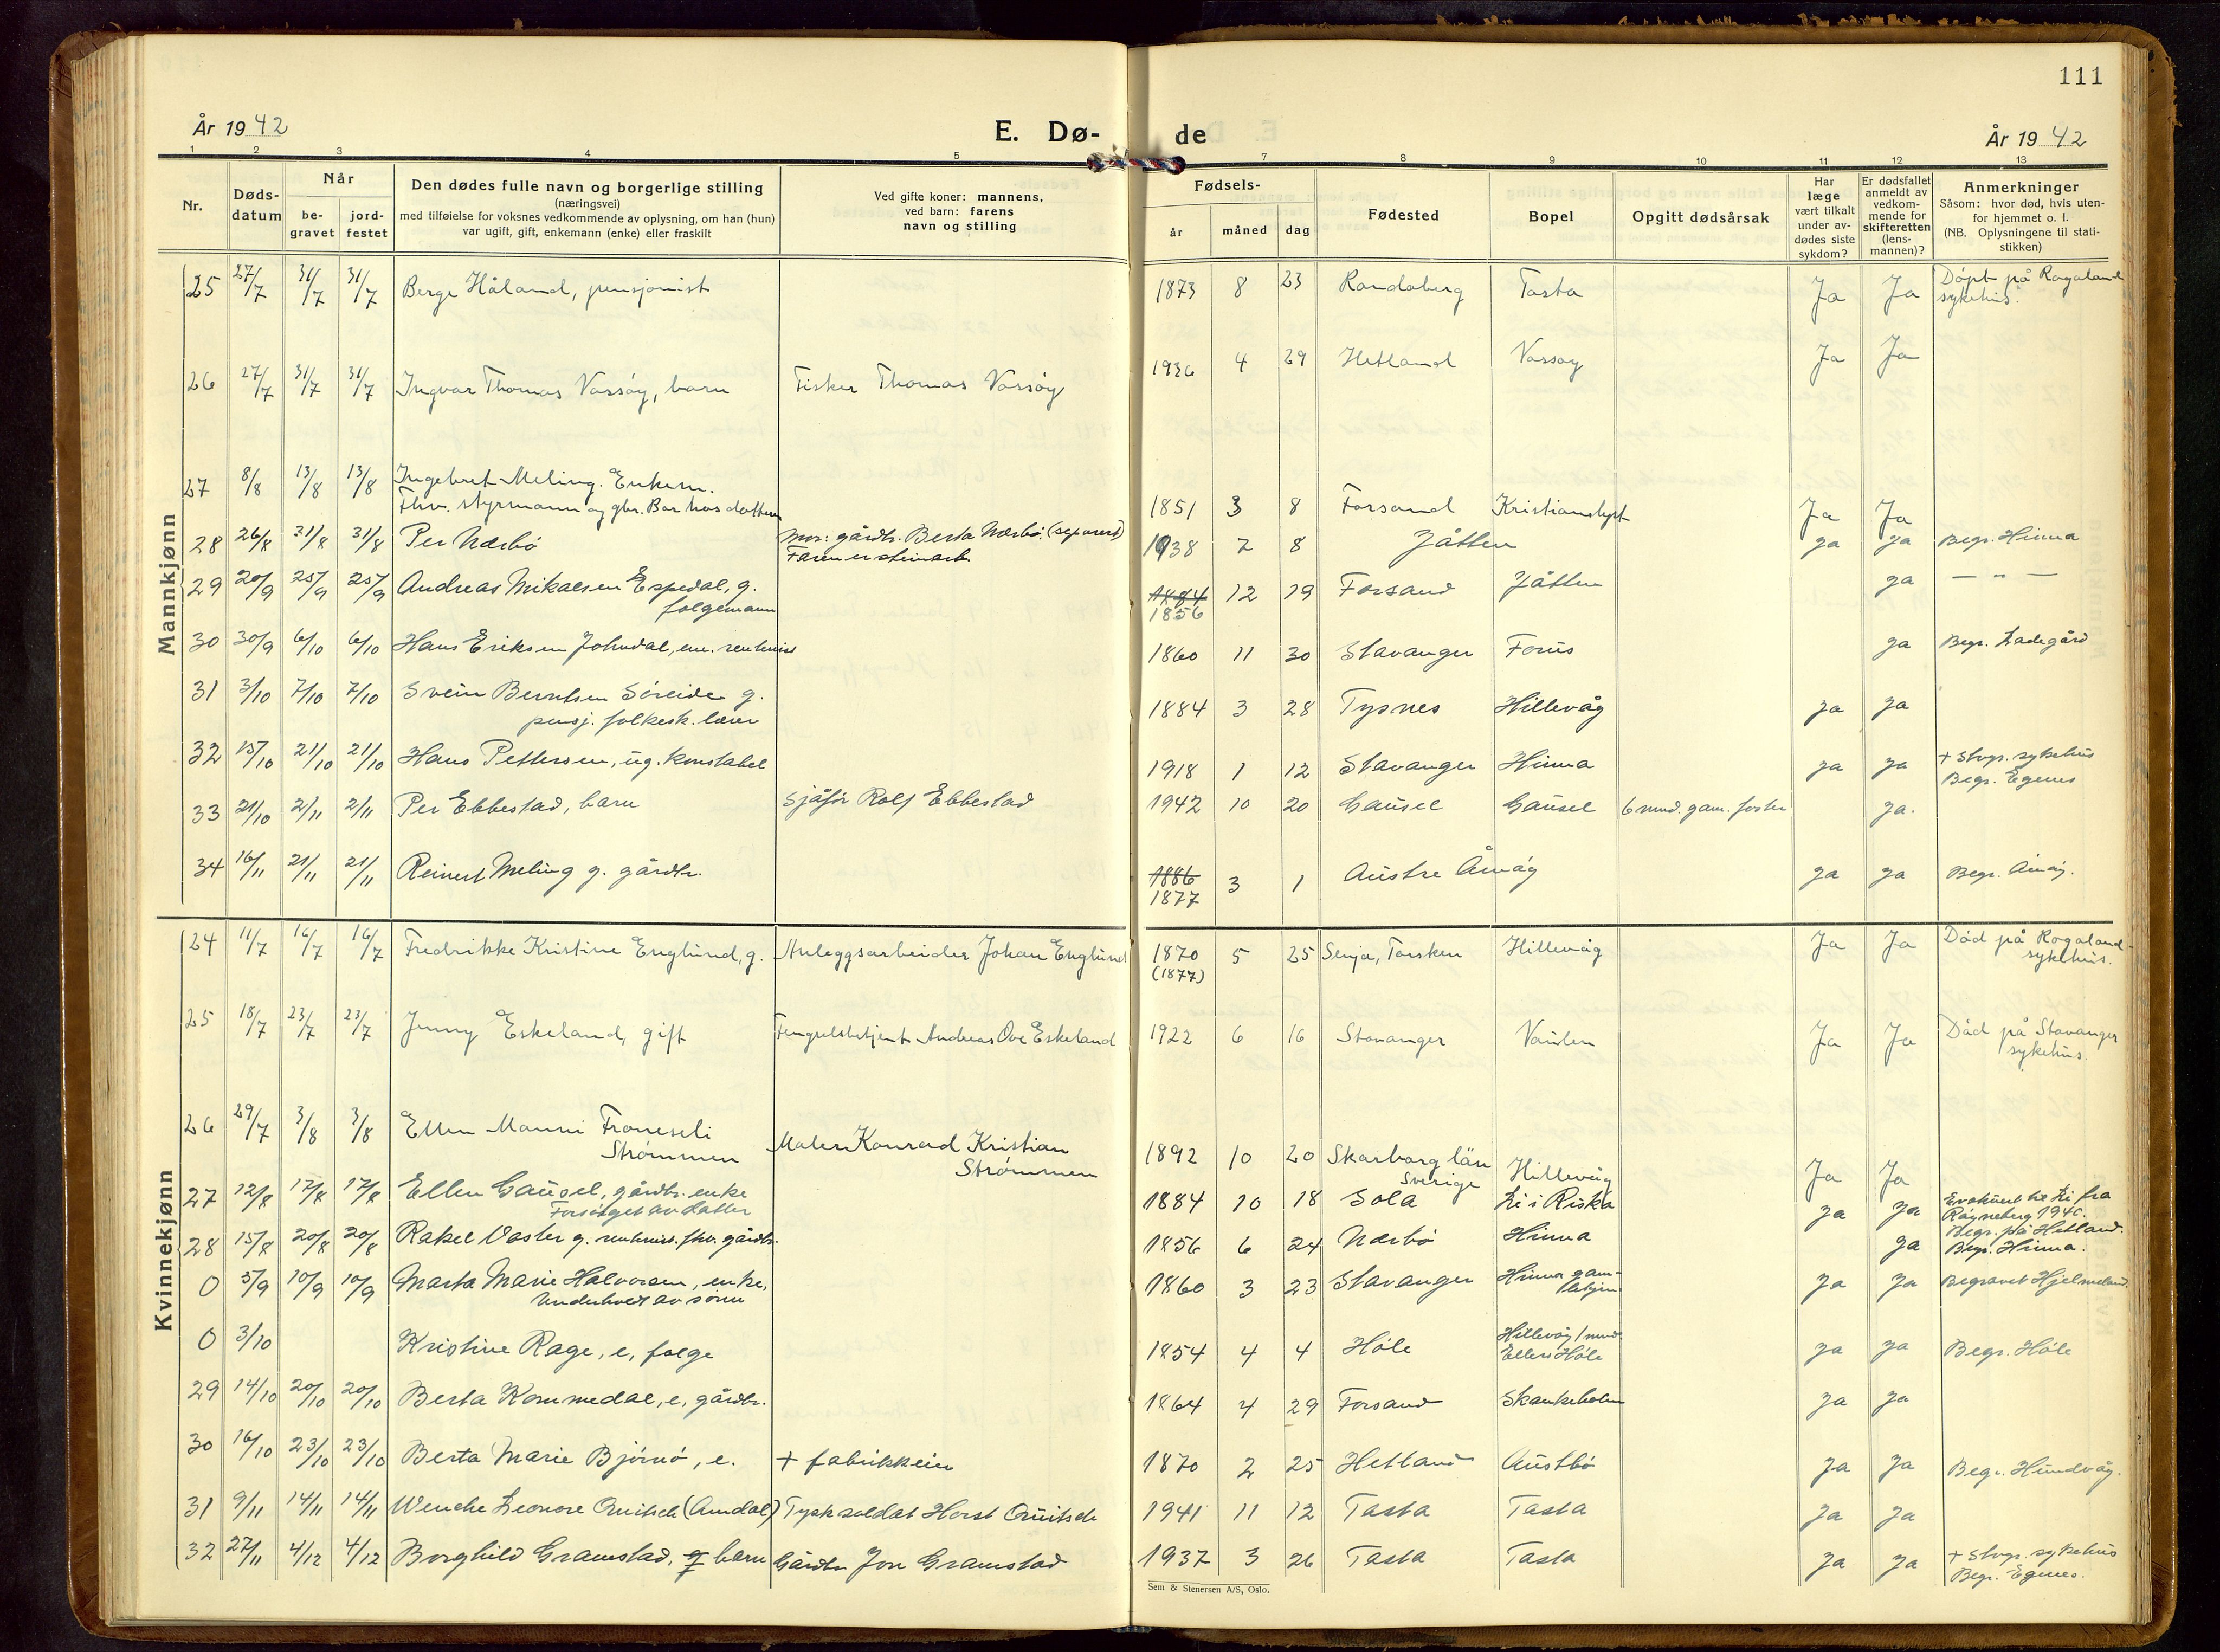 111
År 1942
E. Dø-
de
År 1942
1 2 3 4 5 7 8 9 10 11 12 13
Nr.
Døds-
datum
Når
be-
gravet
jord-
festet
Den dødes fulle navn og borgerlige stilling
(næringsvei)
med tilføielse for voksnes vedkommende av oplysning, om han (hun)
var ugift, gift, enkemann (enke) eller fraskilt
Ved gifte koner: mannens,
ved barn: farens
navn og stilling
Fødsels-
år måned dag
Fødested
Bopel
Opgitt dødsårsak
Har
læge
vært tilkalt
under av-
dødes siste
sykdom?
Er dødsfallet
anmeldt av
vedkom-
mende for
skifteretten
(lens-
mannen)?
Anmerkninger
Såsom: hvor død, hvis uten-
for hjemmet o. l.
(NB. Oplysningene til stati-
stikken)
Mannkjønn
25 27/7 31/7 31/7 Berge Håland, pensjonist 1873 8 23 Randaberg Tasta Ja Ja Døpt på Rogaland
sykehus.
26 27/7 31/7 31/7 Ingvar Thomas Vassøy, barn Fisker Thomas Vassøy 1936 4 29 Hetland Vassøy Ja Ja
27 8/8 13/8 13/8 Ingebret Meling. Enkem.
Fhv. styrmann og gbr. Bor hos datteren 1851 3 8 Forsand Kristianslyst Ja Ja
28 26/8 31/8 31/8 Per Nærbø Mor: gårdbr. Berta Nærbø. (separert)
Faren er steinarb. 1938 7 8 Jåtten ja ja Begr. Hinna
29 20/9 25/9 25/9 Andreas Mikalsen Espedal, g.
folgemann 1884
1856 12 19 Forsand Jåtten ja — " —
30 30/9 6/10 6/10 Hans Eriksen Johndal, em. rentenist 1860 11 30 Stavanger Forus ja Begr. Ladegård
31 3/10 7/10 7/10 Svein Berntsen Søreide g.
pensj. folkesk. lærer 1884 3 28 Tysnes Hillevåg ja ja
32 15/10 21/10 21/10 Hans Pettersen, ug. konstabel 1918 1 12 Stavanger Hinna ja ja + Stvgr. sykehus
Begr. Egenes
33 21/10 2/11 2/11 Per Ebbestad, barn Sjåfør Rolf Ebbestad 1942 10 20 Gausel Gausel 6 mnd. gam. foster ja.
34 16/11 21/11 21/11 Reinert Meling g. gårdbr. 1886
1877 3 1 Austre Åmøy ja ja Begr. Åmøy.
Kvinnekjønn
24 11/7 16/7 16/7 Fredrikke Kristine Englund, g. Anleggsarbeider Johan Englund 1870
(1877) 5 25 Senja, Torsken Hillevåg Ja Ja Død på Rogaland-
sykehus.
25 18/7 23/7 23/7 Jenny Eskeland, gift Fengselsbetjent Andreas Ove Eskeland 1922 6 16 Stavanger Vaulen Ja Ja Død på Stavanger
sykehus.
26 29/7 3/8 3/8 Ellen Manni Froneseli
Strømmen Maler Konrad Kristian
Strømmen 1892 10 20 Skarborg län
Sverige Hillevåg Ja Ja
27 12/8 17/8 17/8 Ellen Gausel, gårdbr. enke
Forsørget av datter 1884 10 18 Sola Li i Riska ja ja Evakuert til Li fra
Røyneberg 1940.
Begr. på Hetland.
28 15/8 20/8 20/8 Rakel Vaster g. rentenist. fhv. gårdbr. 1856 6 24 Nærbø Hinna ja Begr. Hinna.
0 5/9 10/9 10/9 Marta Marie Halvorsen, enke,
Underholdt av sønn 1860 3 23 Stavanger Hinna gam-
lehjem ja ja Begravet Hjelmeland
0 3/10 Kristine Rage, e, folge 1854 4 4 Høle Hillevåg 1 mnd.
Ellers Høle ja ja Begr. Høle
29 14/10 20/10 20/10 Berta Kommedal, e, gårdbr. 1864 4 29 Forsand Skankeholm ja ja
30 16/10 23/10 23/10 Berta Marie Bjørnø, e. + fabrikkeier 1870 2 25 Hetland Austbø ja ja Begr. Hundvåg.
31 9/11 14/11 14/11 Wenche Leonore Quitsch (Amdal) Tysk soldat Horst Quitsch 1941 11 12 Tasta Tasta ja ja
32 27/11 4/12 4/12 Borghild Gramstad, g barn Gårdbr Jon Gramstad 1937 3 26 Tasta Tasta ja ja + Stvgr. sykehus
Begr. Egenes.
Sem & Stenersen A/S, Oslo.